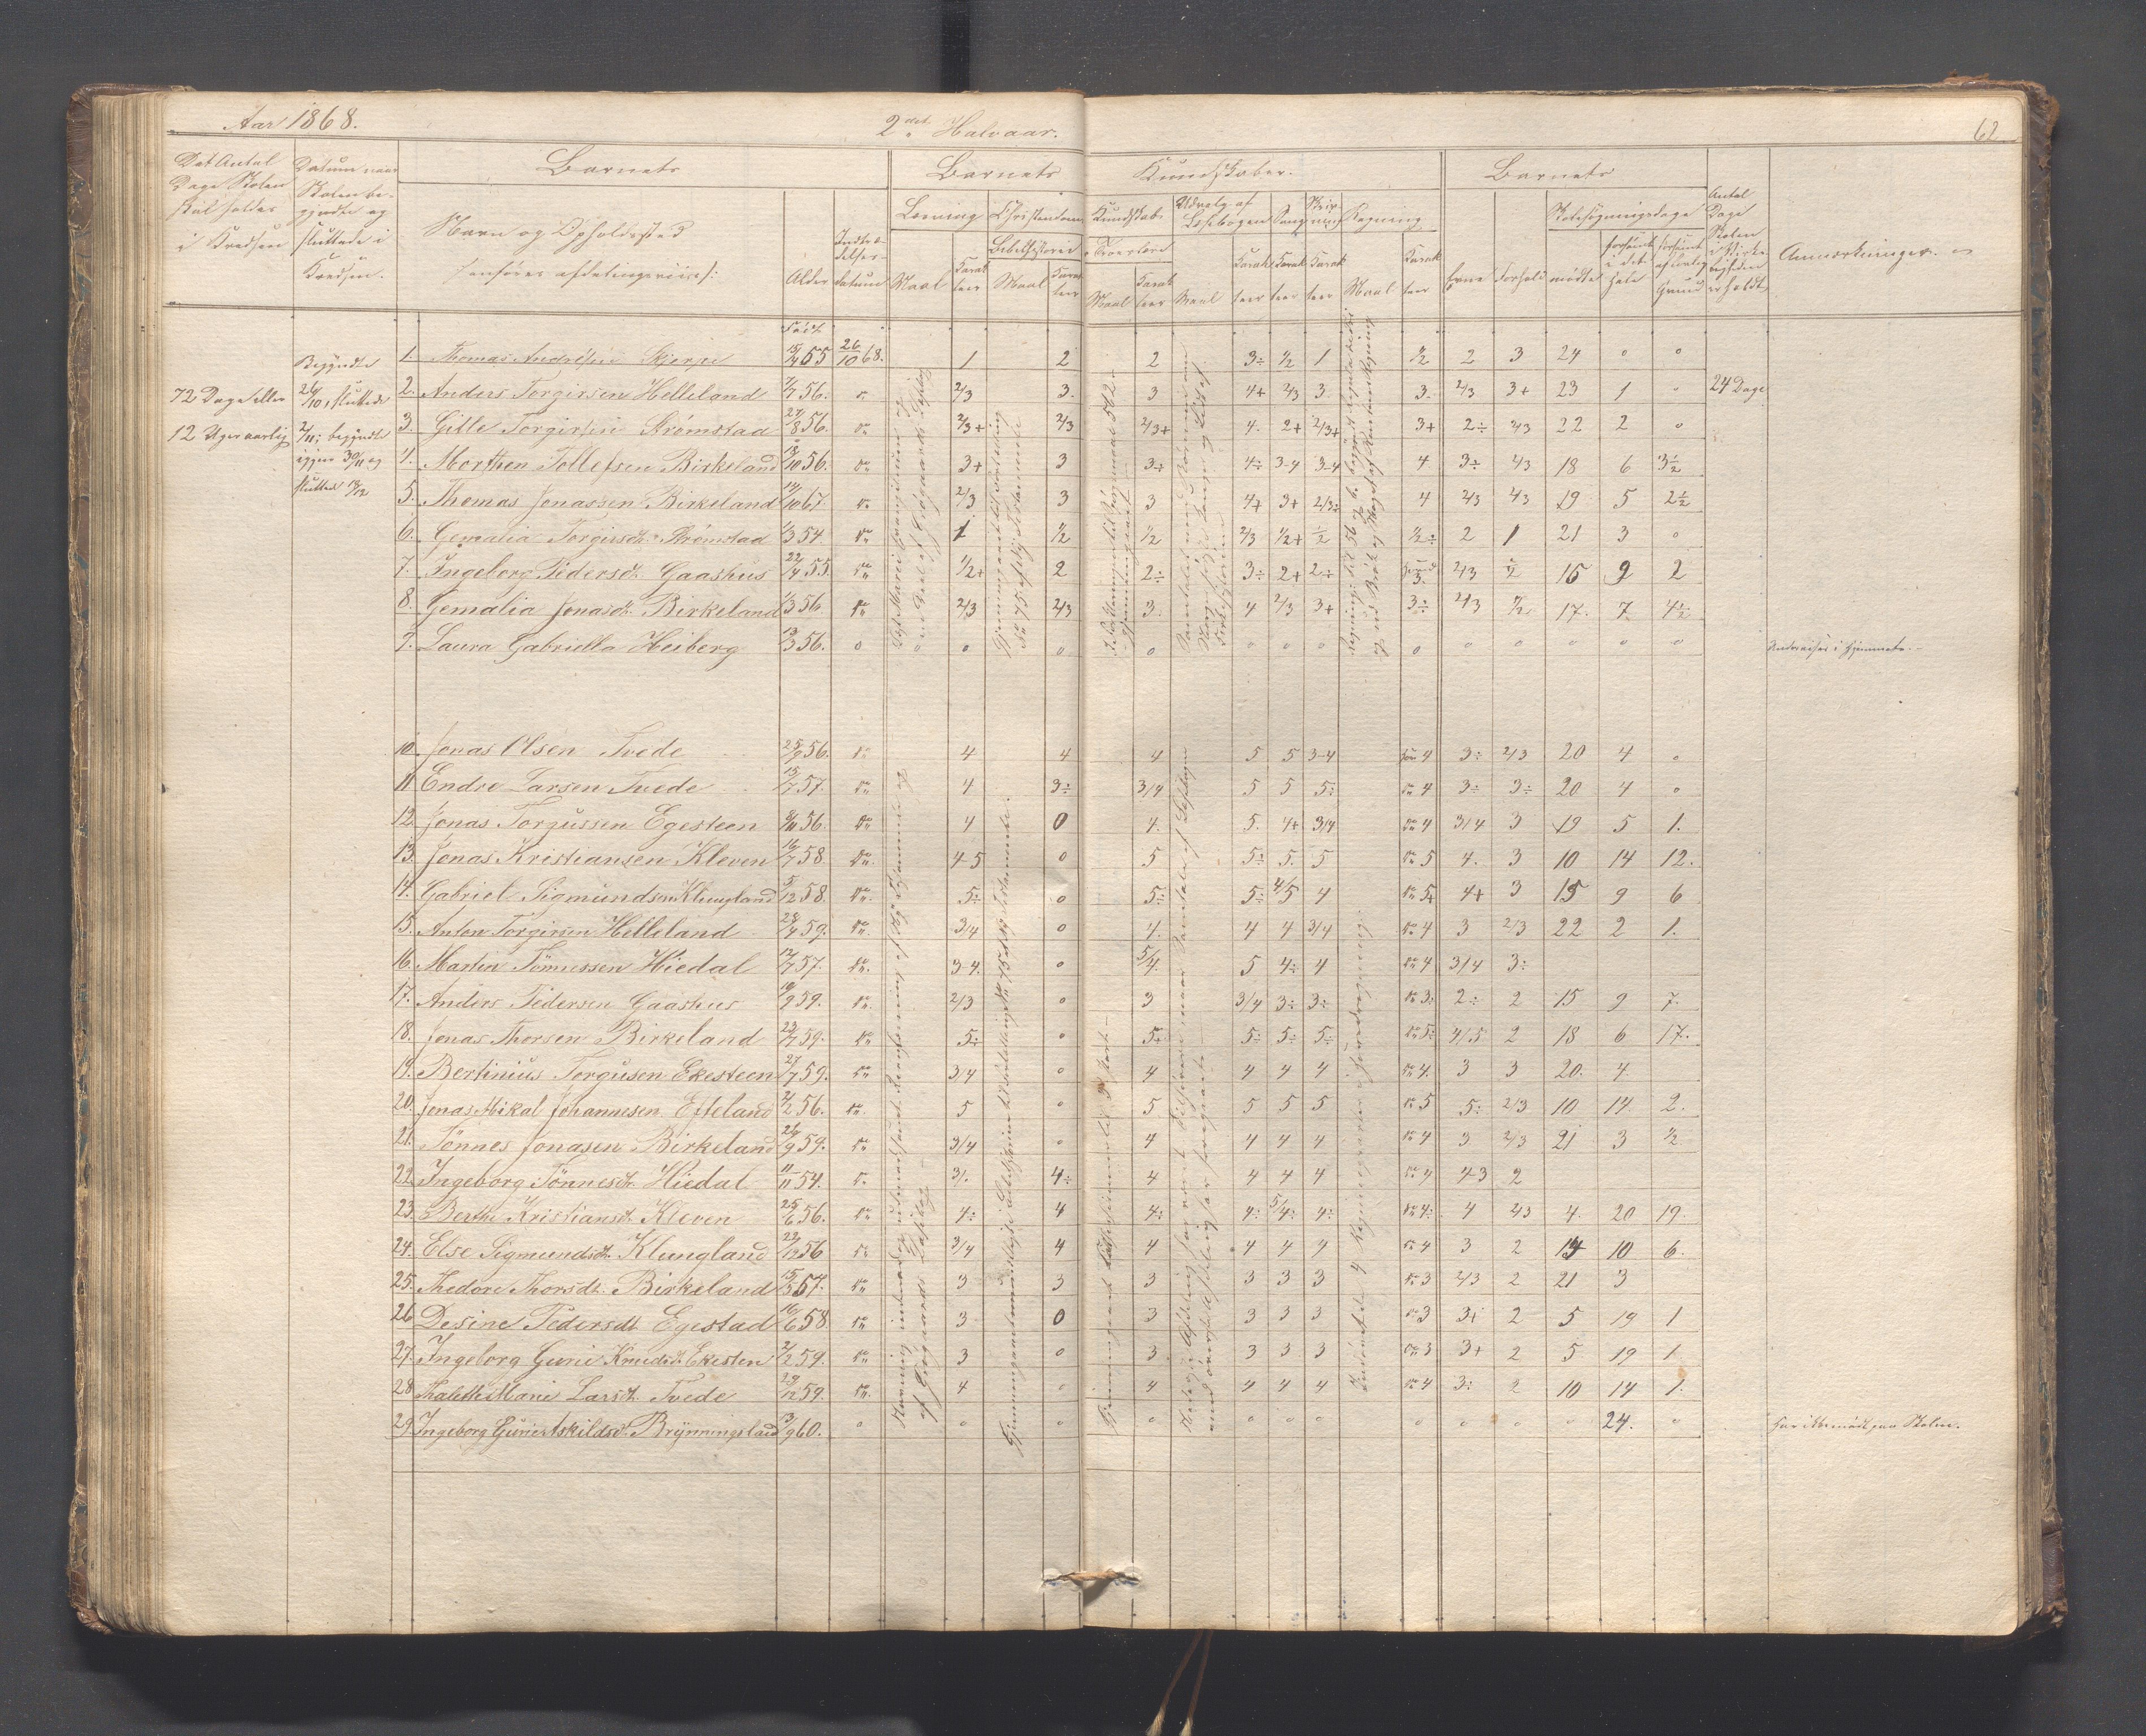 Aar 1868.
2det Halvaar.
62
Det Antal Dage Skolen skal holdes i Kredsen
Datum naar Skolen begyndte og sluttede i Kredsen.
Barnets
Navn og Opholdssted
(anføres afdelingsviis):
Alder
Indtrædelsesdatum
Barnets Kundskaber.
Læsning
Maal
Karakteer
Christendom
Bibelhistorie
Maal
Karakteer
Kundskab
Troeslære
Maal
Karakteer
Udvalg af Læsebogen
Maal
Karakteer
Sang
Karakteer
Skrivning
Karakteer
Regning
Maal
Karakteer
Barnets
Evne
Forhold
Skolesøgningsdage
mødte
forsømte i det Hele
forsømt af lovlig Grund
Antal Dage Skolen i Virkeligheden er holdt
Anmærkninger.
72 Dage eller
12 Uger aarlig
Begyndte
26/10, sluttede
2/11; begyndte
igjen 30/11 og
sluttede 18/12
Født
1. Thomas Andréssen Skjerpe 15/4 55 26/10 68. 1 2 2 3÷ 1/2 1 1/2 2 3 24 0 0
2. Anders Torgirsen Helleland 7/7 56. 2/3 3. 3 4+ 2/3 3. 3. 2/3 3+ 23 1 0 24 Dage
3. Gitle Torgirsen Strømstad 27/8 56. do 2/3+ 2/3 2/3+ 4. 2+ 2/3+ 3+ 2÷ 2/3 22 2 0
4. Morthen Tollefsen Birkeland 13/10 56. do 3+ 3 3÷ 4÷ 3-4 3-4 4 3÷ 2/3 18 6 3½
5. Thomas Jonassen Birkeland 14/10 67. do 2/3 3 3 4+ 3+ 2/3÷ 4 2/3 2/3 19 5 2½
6. Gemalia Torgirsdt. Strømstad 1/3 54. do 1 1/2 1/2 2/3 1/2+ 1/2 1/2÷ 2 1 21 3 0
7. Ingeborg Pedersdt. Gaashus 22/4 55. do 1/2+ 2 2÷ 3÷ 2+ 2÷ 3. 2/3 1/2 15 9 2
8. Gemalia Jonasdt. Birkeland 1/3 56. do 2/3 2/3 3. 4 2/3 3+ 3÷ 2/3 1/2 17. 7 4½
9. Laura Gabriella Heiberg 13/3 56. 0 0 0 0 0 0 0 0 0 0 0 0 0 Undervises i Hjemmet.
10. Jonas Olsen Tvede 25/9 56. do 4 4 4 5 5 3-4 4 3÷ 2/3 20 4 0
11. Endre Larsen Tvede 15/7 57. do 4 3÷ 3/4 5 5 5÷ do 4 3÷ 3÷ 20 4 0
12. Jonas Torgussen Egesteen 9/11 56. do 4 0 4. 5. 4+ 3/4 do 4 3/4 3 19 5 1.
13. Jonas Kristiansen Kleven 16/7 58. do 4-5 0 5 5÷ 5. 5 do 5 4. 3 10 14 12.
14. Gabriel Sigmundsen Klungland 5/12 58. do 5÷ 0 5÷ 5÷ 4/5 4 do 5+ 4+ 3 15 9 6
15. Anton Torgirsen Helleland 28/4 59. do 3/4 0 4. 4 4 3/4 do 4 3 2/3 22 2 1.
16. Martin Tönnessen Hiedal 12/7 57. do 3-4. 0 5/4. 5 4÷ 4 do 4 3/4 3÷
17. Anders Pedersen Gaashus 10/9 59. do 2/3 0 3 3/4 3÷ 3÷ do 3÷ 2÷ 2 15 9 7.
18. Jonas Thorsen Birkeland 23/7 59. do 5÷ 0 5÷ 5÷ 5÷ 5÷ do 5÷ 4/5 2 18 6 17.
19. Bertinius Torgusen Ekesteen 27/7 59. do 3-4 0 4 4 4 4 do 4. 3 3 20. 4
20. Jonas Mikal Johannesen Efteland 2/2 56. do 5 0 5 5 5 5 do 5 5÷ 2/3 10 14 2.
21. Tönnes Jonasen Birkeland 26/9 59. do 3/4 0 4 4 4 4 do 4 3 2/3 21 3 1/2
22. Ingeborg Tönnesdt. Hiedal 11/11 54. do 4÷ 4 4 4 4 do 4 4-3 2
23. Berthe Kristiansdt. Kleven 25/6 56. do 4÷ 4 4÷ 4÷ 5/4÷ 4÷ do 4÷ 4 2/3 4. 20 19.
24. Else Sigmundsdt. Klungland 22/12 56 do 3/4 4 4 4 4 4 do 4 3 2 14 10 6.
25. Thedore Thorsdt. Birkeland 15/5 57. do 3 3 3 3 3 3 do 3 2/3 2 21 3
26. Desine Pedersdt. Egestad 16/6 58. do 3 0 3 3 3 3 do 3 3+ 2 5 19 1
27. Ingeborg Gurie Knudsdt. Ekesten 2/2 59. do 3 0 3. 3 3 3 do 3 3+ 2 5 19 1
28. Malethe Marie Larsdt. Tvede 29/12 59. do 4 0 4 4 4 4 do 4 3÷ 2 10 14 1.
29. Ingeborg Gurie Askildsd. Brynningsland 3/9 60. 0 0 0 0 0 0 0 0 0 0 0 24. 0 Har ikke mødt paa Skolen.